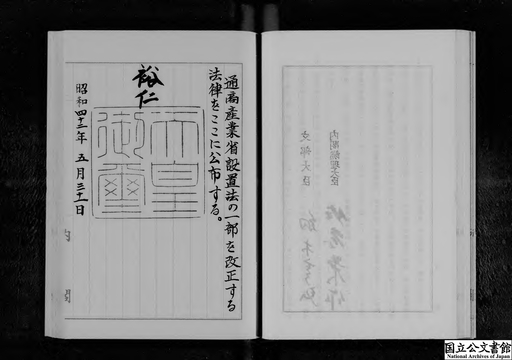 通商産業省設置法の一部を改正する
法律をここに公布する。
裕仁
天皇
御璽
昭和四十三年五月三十一日
内閣
内閣総理大臣
文部大臣
国立公文書館
National Archives of Japan